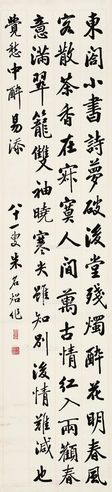 東閣小書詩夢破後堂殘燭醉花明春風
客散茶香在寂寞人間萬古情紅入兩顴春
意滿翠籠雙袖曉寒尖雖知別後情難減也
覺愁中醉易添
八十一叟朱石作